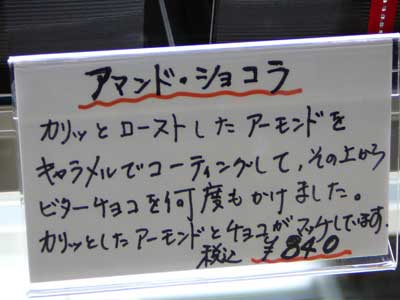 アマンド・ショコラ
カリッとローストしたアーモンドを
キャラメルでコーティングして、その上から
ビターチョコを何度もかけました。
カリッとしたアーモンドとチョコがマッチしています。
税込 ¥840